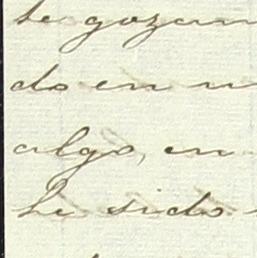 se gozan
do en u
algo, en
he sido